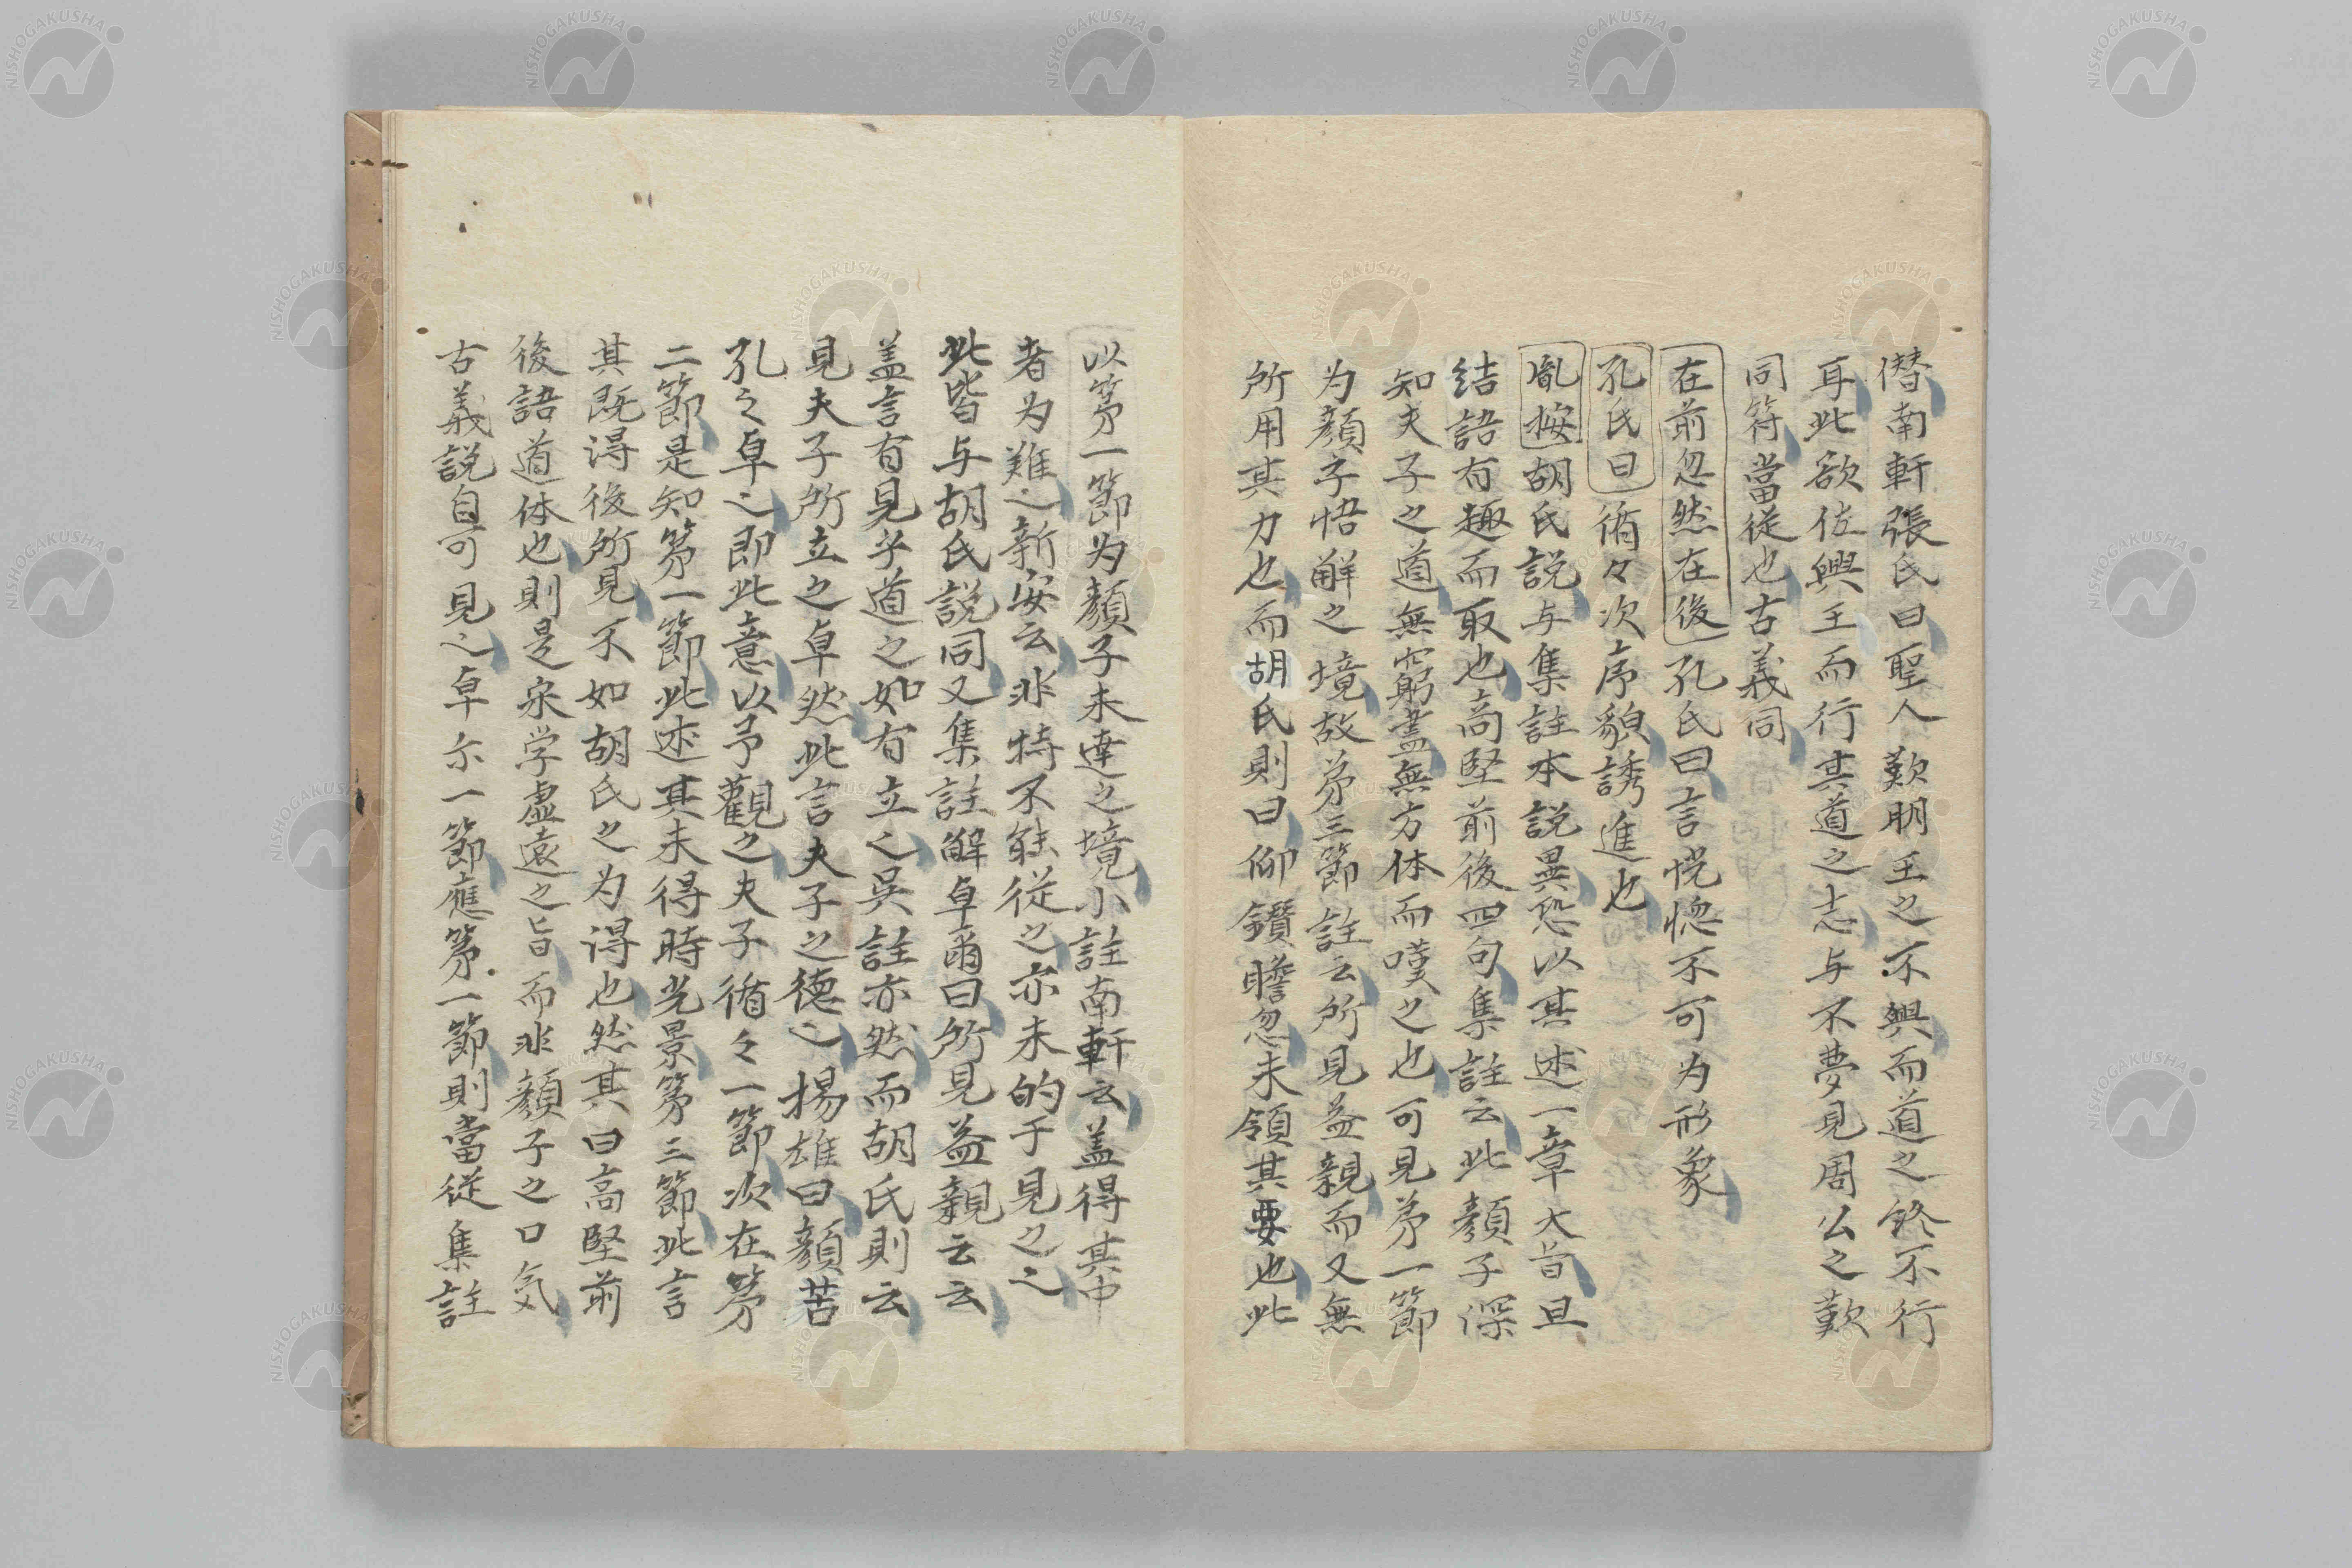 僣南軒張氏曰聖人歎明王之不興而道之終不行
耳此欲佐興王而行其道之志与不夢見周公之歎
同符當従也古義同
在前忽然在後孔氏曰言恍惚不可为形象
孔氏曰循々次序貌誘進也
胤按胡氏説与集註本説異恐以其述一章大旨且
结語有趣而取也高堅前後四句集註云此顔子深
知夫子之道無窮盡無方体而嘆之也可見苐一節
为顔子悟解之境故苐三節註云所見益親而又無
所用其力也而胡氏則曰仰鑽瞻忽未領其要也此
以苐一節为顔子未達之境小註南軒云盖得其中
者为難之新安云非特不能従之亦未的于見之之
此皆与胡氏説同又集註解卓爾曰所見益親云云
盖言有見乎道之如有立之吴註亦然而胡氏則云
見夫子所立之卓然此言夫子之德之揚雄曰顔苦
孔之卓之即此意以予觀之夫子循々一節次在苐
二節是知苐一節此述其未得時光景苐三節此言
其既得後所見不如胡氏之为得也然其曰高堅前
後語道体也則是宋学虚遠之旨而非顔子之口気
古義説自可見之卓尓一節應苐一節則當従集註
NISHOGAKUSHA